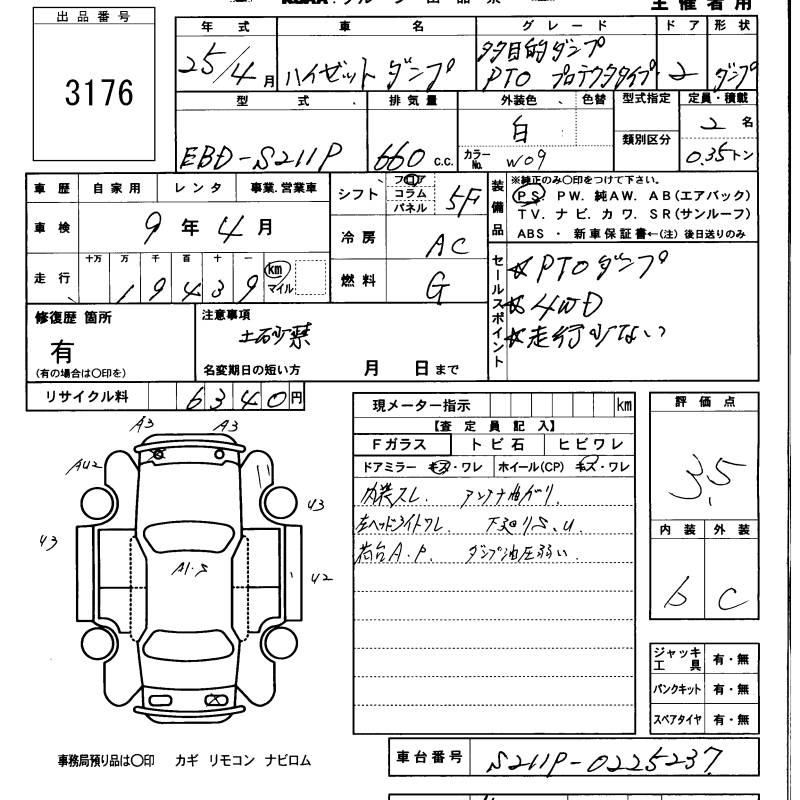 出品番号
3176
主催者用
年式 車名 グレード ドア 形状
25/4月 ハイゼットダンプ 多目的ダンプ PTO プロテクタタイプ 2 ダンプ
型式 排気量 外装色 色替 型式指定 定員・積載
EBD-S211P 660 c.c. 白 カラーNo. W09 類別区分 2名 0.35トン
車歴 自家用 レンタ 事業.営業車
車検 9年4月
走行 十万 万 千 百 十 一 km マイル
19439
シフト フロア コラム パネル 5F
冷房 AC
燃料 G
装備品
※純正のみ〇印をつけて下さい。
PS. PW. 純AW. AB(エアバック)
TV. ナビ. カワ. SR(サンルーフ)
ABS ・ 新車保証書←(注) 後日送りのみ
セールスポイント
☆PTOダンプ
☆4WD
☆走行少ない
修復歴 箇所
有
(有の場合は〇印を)
注意事項
土砂禁
名変期日の短い方 月 日まで
リサイクル料 6340円
現メーター指示 km
【査定員記入】
Fガラス トビ石 ヒビワレ
ドアミラー キズ・ワレ ホイール(CP) キズ・ワレ
内装スレ. アンテナ曲がり.
左ヘッドライトワレ. 下廻りS.U
荷台A.P. ダンプ油圧弱い.
評価点
3.5
内装 外装
b C
ジャッキ工具 有・無
パンクキット 有・無
スペアタイヤ 有・無
A3 A3
AU2
U3
U3
U2
A1.S
事務局預り品は〇印 カギ リモコン ナビロム
車台番号 S211P-0225237